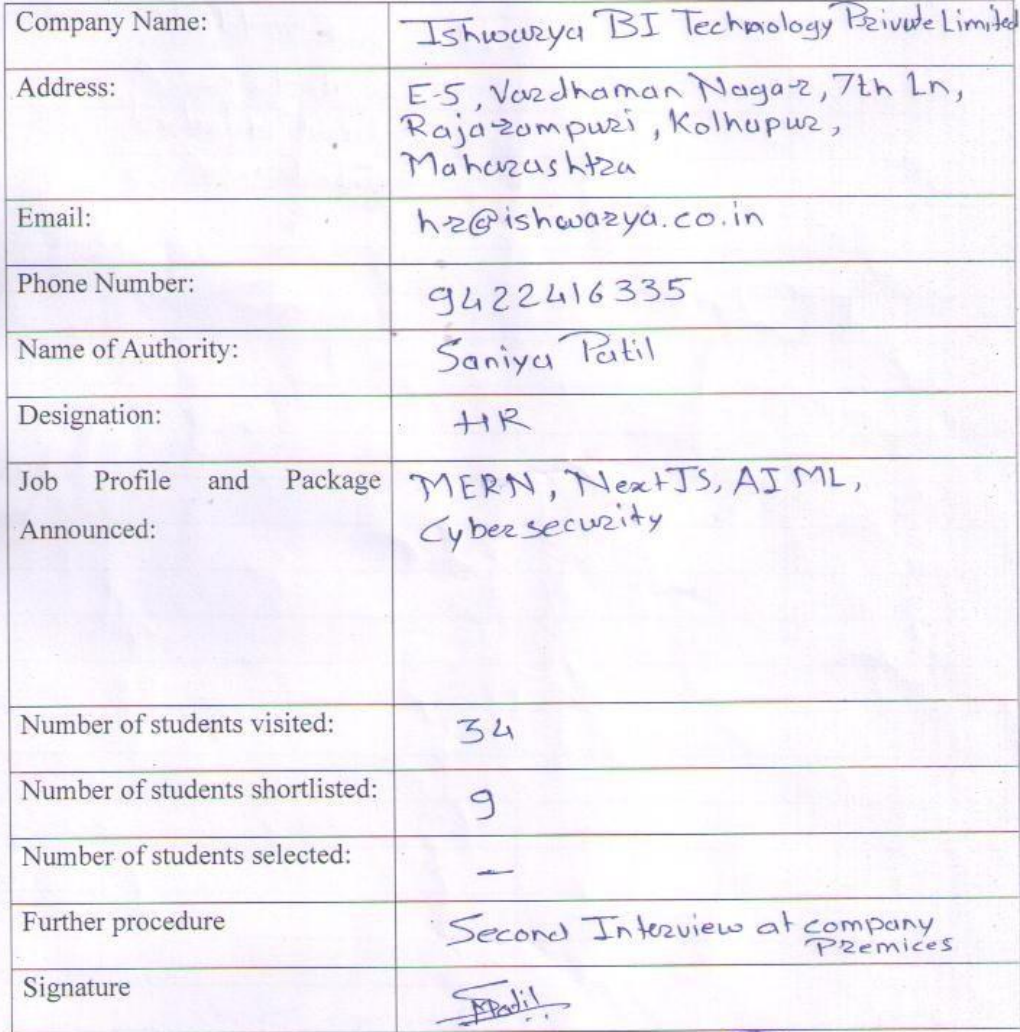 Company Name: Ishwarya BI Technology Private Limited
Address: E-5, Vardhaman Nagar, 7th Ln,
Rajarampuri, Kolhapur,
Maharashtra
Email: hr@ishwarya.co.in
Phone Number: 9422416335
Name of Authority: Saniya Patil
Designation: HR
Job Profile and Package MERN, Next JS, AI ML,
Announced: Cybersecurity
Number of students visited: 34
Number of students shortlisted: 9
Number of students selected: –
Further procedure Second Interview at company
Premices
Signature SPatil